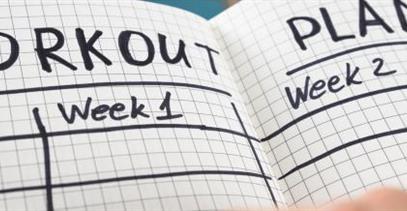 ORKOUT PLAN
Week 1
Week 2